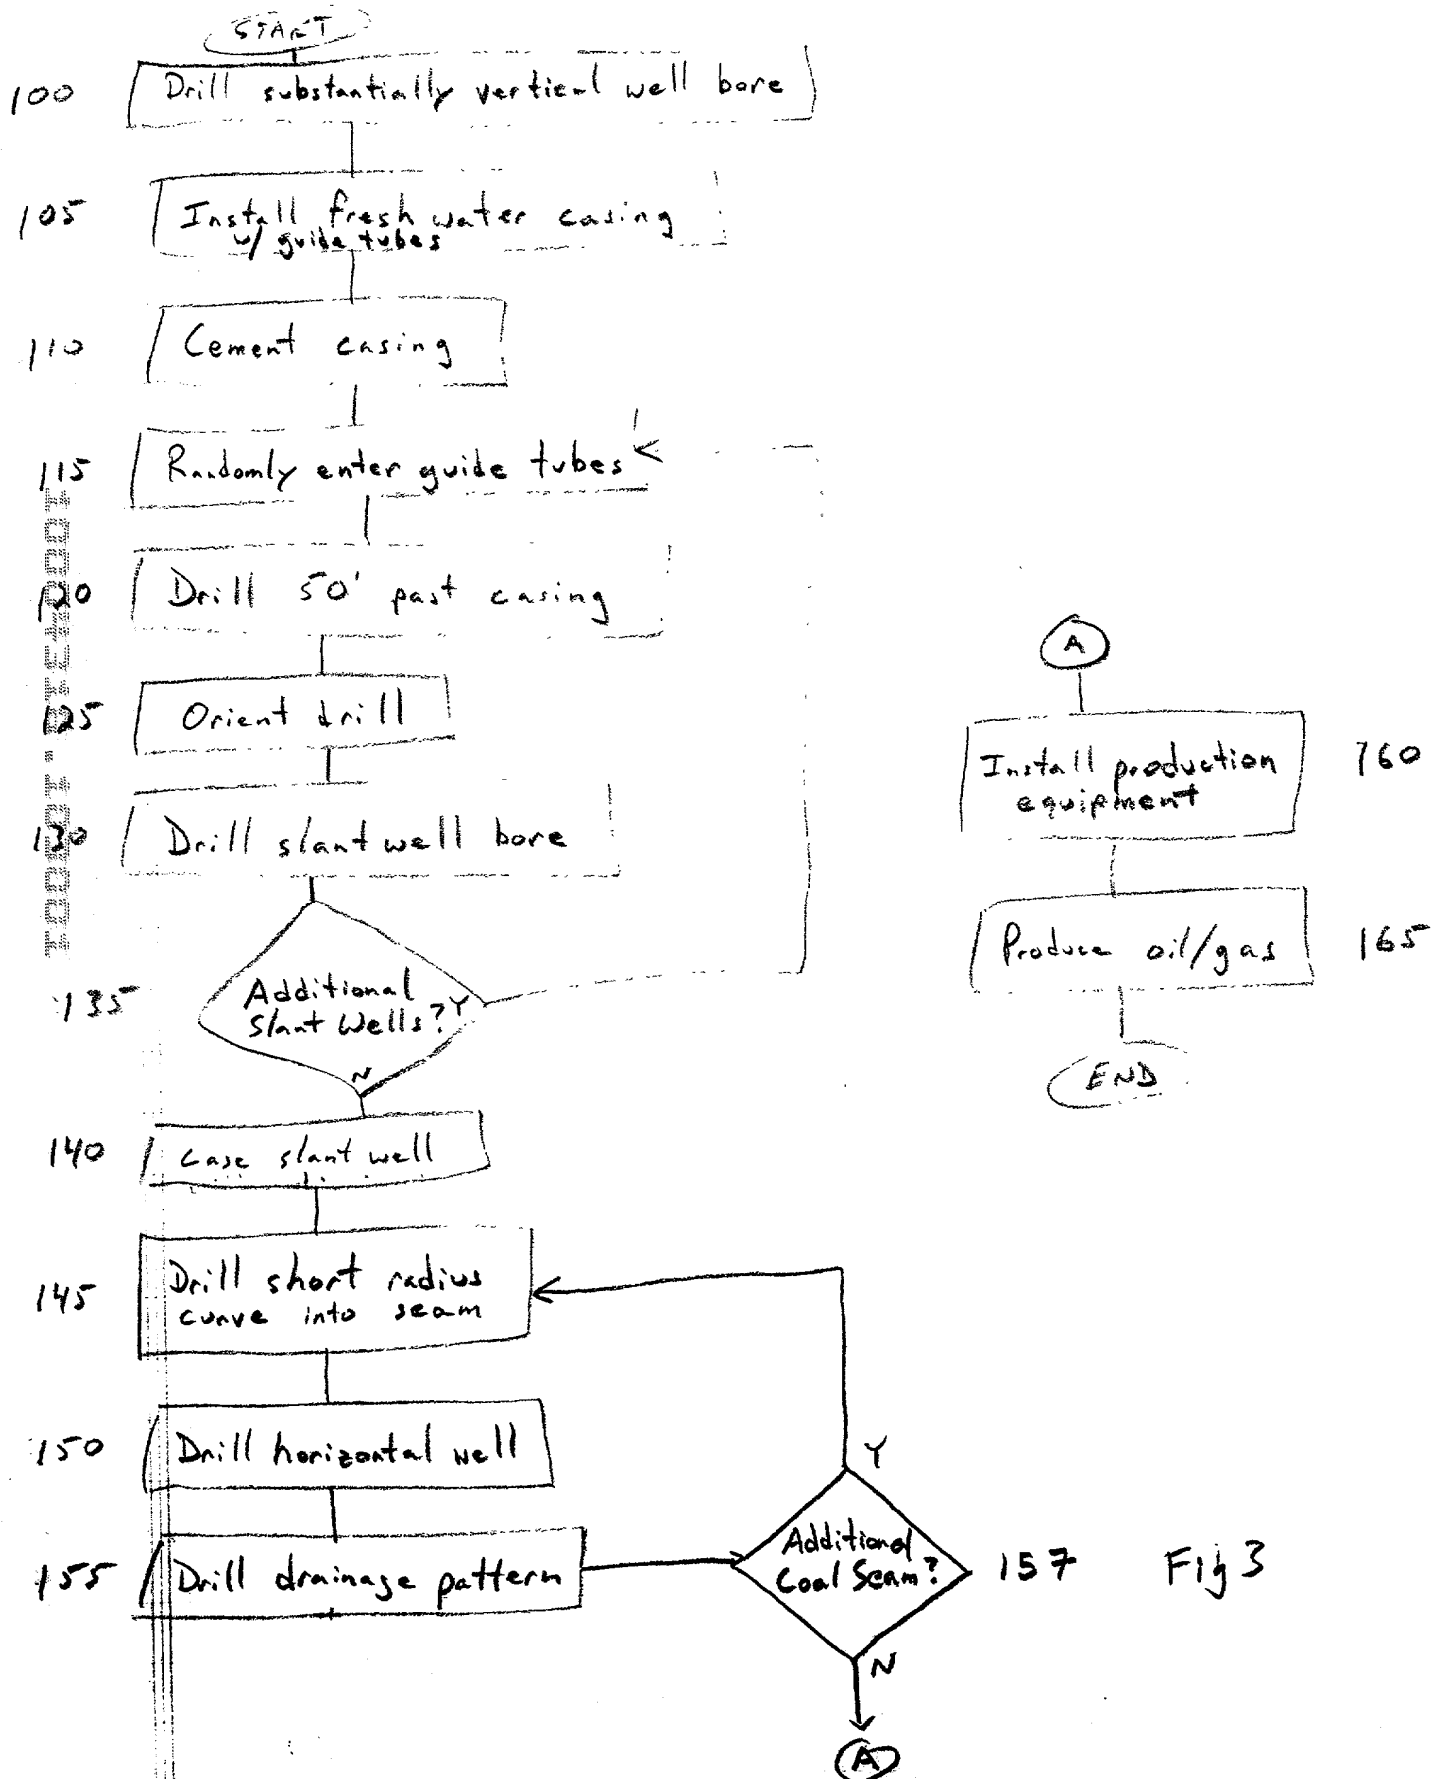 START
100 Drill substantially vertical well bore
105 Install fresh water casing
w/ guide tubes
110 Cement casing
115 Randomly enter guide tubes
120 Drill 50' past casing
125 Orient drill
130 Drill slant well bore
135 Additional
Slant Wells? Y
N
140 Case slant well
145 Drill short radius
curve into seam
150 Drill horizontal well
155 Drill drainage pattern
Y
Additional
Coal Seam? 157
N
A
A
Install production 160
equipment
Produce oil/gas 165
END
Fig 3